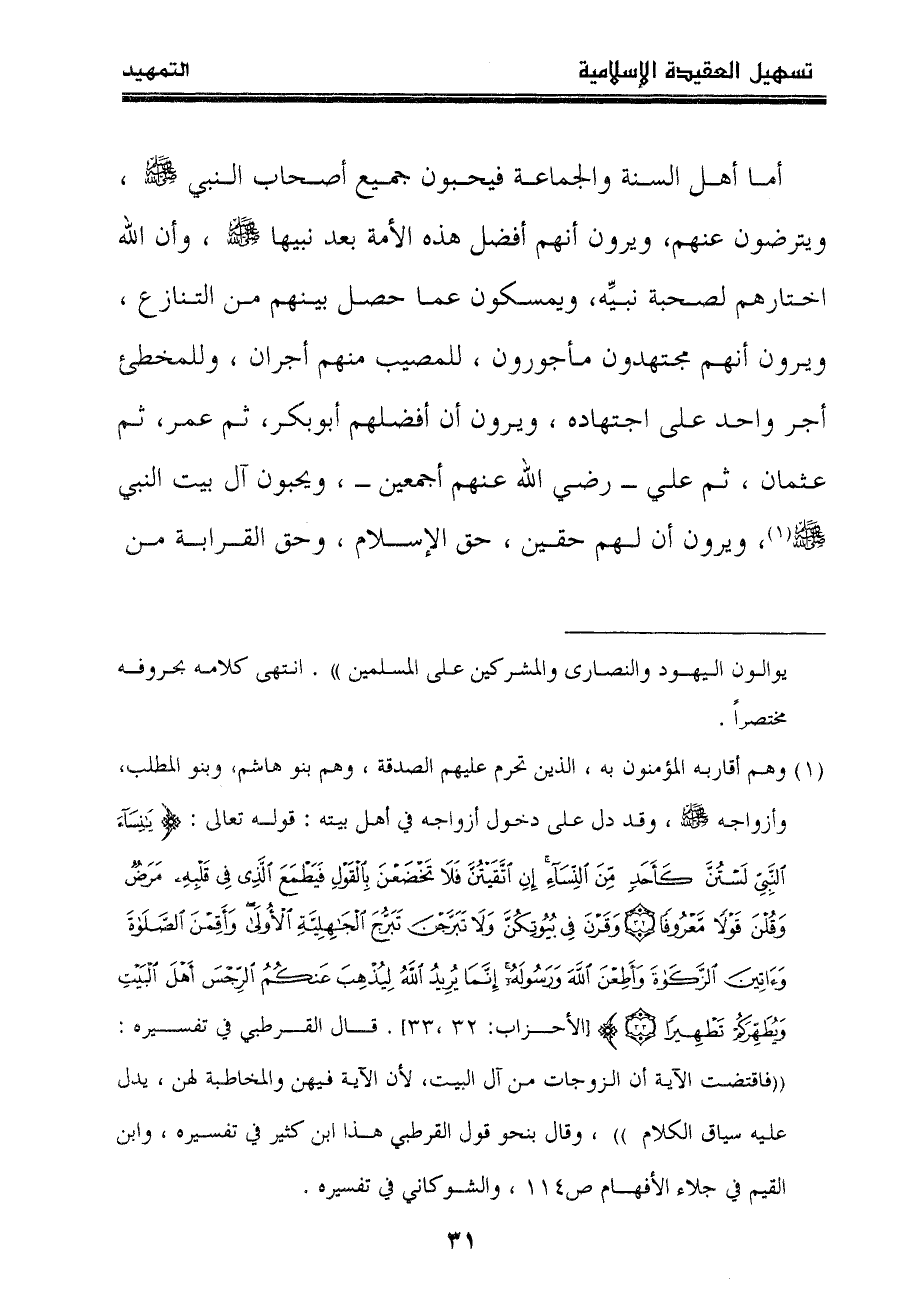 تسهيل العقيدة الإسلامية التمهيد
أما أهل السنة والجماعة فيحبون جميع أصحاب النبي ﷺ ،
ويترضون عنهم، ويرون أنهم أفضل هذه الأمة بعد نبيها ﷺ ، وأن الله
اختارهم لصحبة نبيِّه، ويمسكون عما حصل بينهم من التنازع ،
ويرون أنهم مجتهدون مأجورون ، للمصيب منهم أجران ، وللمخطئ
أجر واحد على اجتهاده ، ويرون أن أفضلهم أبوبكر، ثم عمر، ثم
عثمان ، ثم علي ــ رضي الله عنهم أجمعين ــ ، ويحبون آل بيت النبي
ﷺ(١)، ويرون أن لهم حقين ، حق الإسلام ، وحق القرابة من
يوالون اليهود والنصارى والمشركين على المسلمين )) . انتهى كلامه بحروفه
مختصراً .
(١) وهم أقاربه المؤمنون به ، الذين تحرم عليهم الصدقة ، وهم بنو هاشم، وبنو المطلب،
وأزواجه ﷺ ، وقد دل على دخول أزواجه في أهل بيته : قوله تعالى : ﴿ يَٰنِسَآءَ
ٱلنَّبِيِّ لَسۡتُنَّ كَأَحَدٖ مِّنَ ٱلنِّسَآءِۚ إِنِ ٱتَّقَيۡتُنَّ فَلَا تَخۡضَعۡنَ بِٱلۡقَوۡلِ فَيَطۡمَعَ ٱلَّذِي فِي قَلۡبِهِۦ مَرَضٞ
وَقُلۡنَ قَوۡلٗا مَّعۡرُوفٗا ٣٢ وَقَرۡنَ فِي بُيُوتِكُنَّ وَلَا تَبَرَّجۡنَ تَبَرُّجَ ٱلۡجَٰهِلِيَّةِ ٱلۡأُولَىٰۖ وَأَقِمۡنَ ٱلصَّلَوٰةَ
وَءَاتِينَ ٱلزَّكَوٰةَ وَأَطِعۡنَ ٱللَّهَ وَرَسُولَهُۥٓۚ إِنَّمَا يُرِيدُ ٱللَّهُ لِيُذۡهِبَ عَنكُمُ ٱلرِّجۡسَ أَهۡلَ ٱلۡبَيۡتِ
وَيُطَهِّرَكُمۡ تَطۡهِيرٗا ٣٣ ﴾ [الأحزاب: ٣٢ ،٣٣] . قال القرطبي في تفسيره :
((فاقتضت الآية أن الزوجات من آل البيت، لأن الآية فيهن والمخاطبة لهن ، يدل
عليه سياق الكلام )) ، وقال بنحو قول القرطبي هذا ابن كثير في تفسيره ، وابن
القيم في جلاء الأفهام ص١١٤ ، والشوكاني في تفسيره .
٣١